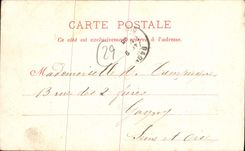 CARTE POSTALE
Ce côté est exclusivement réservé à l'adresse.
29
PARIS
Mademoiselle A. Campagne
13 rue des 2 gares
Cagny
Seine et Oise